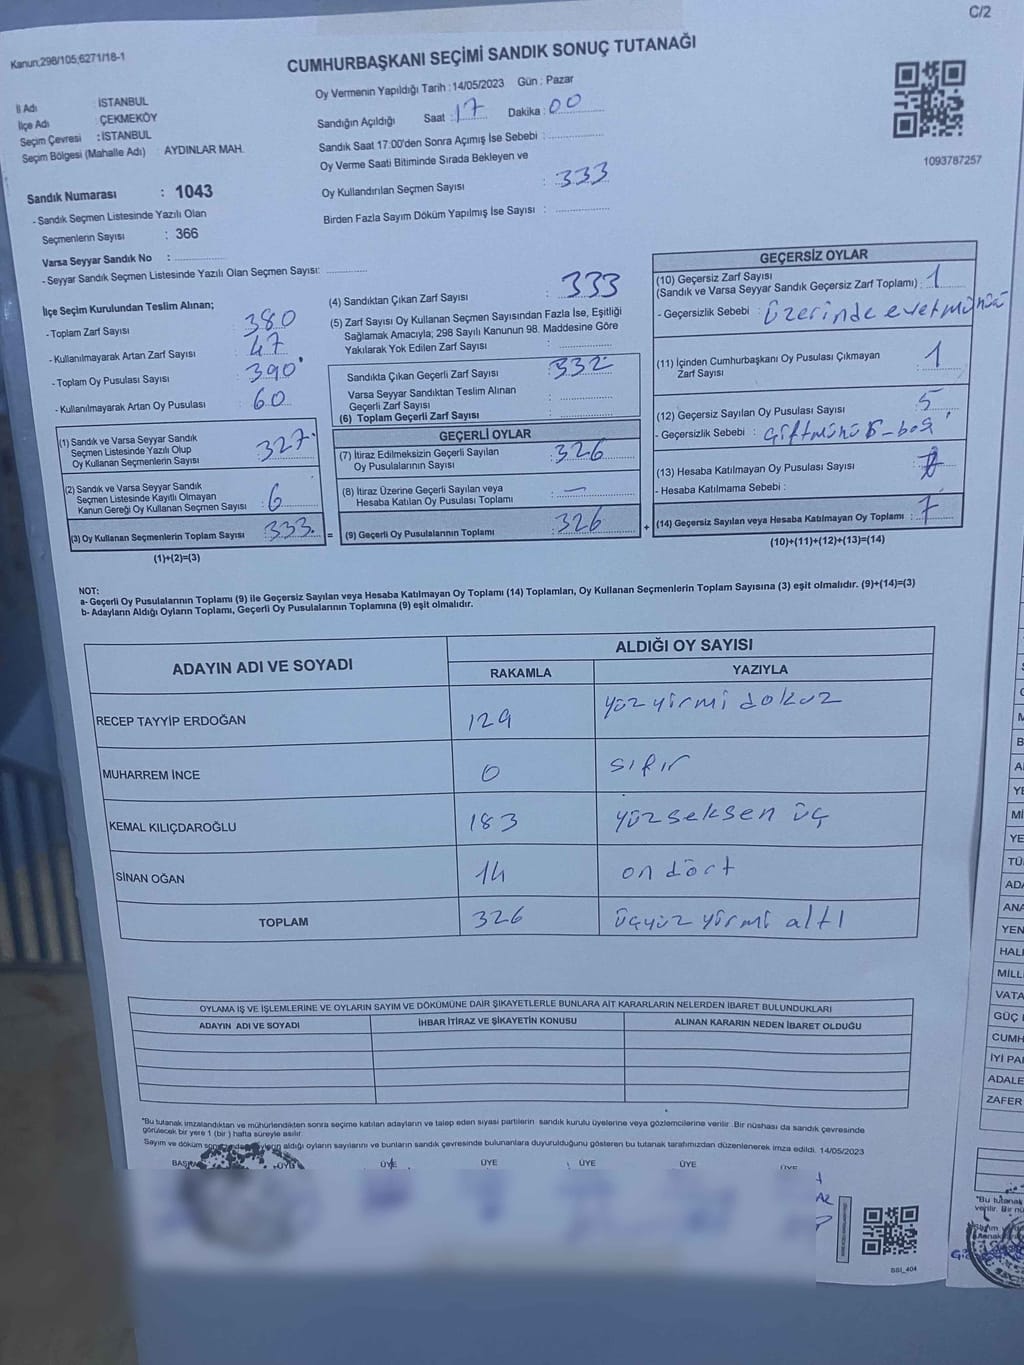 C/2
Kanun;298/105;6271/18-1
CUMHURBAŞKANI SEÇİMİ SANDIK SONUÇ TUTANAĞI
İl Adı : İSTANBUL
İlçe Adı : ÇEKMEKÖY
Seçim Çevresi : İSTANBUL
Seçim Bölgesi (Mahalle Adı) : AYDINLAR MAH.
Sandık Numarası : 1043
- Sandık Seçmen Listesinde Yazılı Olan
Seçmenlerin Sayısı : 366
Varsa Seyyar Sandık No :
- Seyyar Sandık Seçmen Listesinde Yazılı Olan Seçmen Sayısı:
Oy Vermenin Yapıldığı Tarih : 14/05/2023 Gün : Pazar
Sandığın Açıldığı Saat : 17 Dakika : 00
Sandık Saat 17:00'den Sonra Açımış İse Sebebi :
Oy Verme Saati Bitiminde Sırada Bekleyen ve
Oy Kullandırılan Seçmen Sayısı : 333
Birden Fazla Sayım Döküm Yapılmış İse Sayısı :
1093787257
İlçe Seçim Kurulundan Teslim Alınan;
- Toplam Zarf Sayısı : 380
- Kullanılmayarak Artan Zarf Sayısı : 47
- Toplam Oy Pusulası Sayısı : 390
- Kullanılmayarak Artan Oy Pusulası : 60
(1) Sandık ve Varsa Seyyar Sandık
Seçmen Listesinde Yazılı Olup
Oy Kullanan Seçmenlerin Sayısı : 327
(2) Sandık ve Varsa Seyyar Sandık
Seçmen Listesinde Kayıtlı Olmayan
Kanun Gereği Oy Kullanan Seçmen Sayısı : 6
(3) Oy Kullanan Seçmenlerin Toplam Sayısı : 333
(1)+(2)=(3)
(4) Sandıktan Çıkan Zarf Sayısı : 333
(5) Zarf Sayısı Oy Kullanan Seçmen Sayısından Fazla İse, Eşitliği
Sağlamak Amacıyla; 298 Sayılı Kanunun 98. Maddesine Göre
Yakılarak Yok Edilen Zarf Sayısı :
Sandıkta Çıkan Geçerli Zarf Sayısı : 332
Varsa Seyyar Sandıktan Teslim Alınan
Geçerli Zarf Sayısı :
(6) Toplam Geçerli Zarf Sayısı :
GEÇERLİ OYLAR
(7) İtiraz Edilmeksizin Geçerli Sayılan
Oy Pusulalarının Sayısı : 326
(8) İtiraz Üzerine Geçerli Sayılan veya
Hesaba Katılan Oy Pusulası Toplamı : —
= (9) Geçerli Oy Pusulalarının Toplamı : 326 +
GEÇERSİZ OYLAR
(10) Geçersiz Zarf Sayısı
(Sandık ve Varsa Seyyar Sandık Geçersiz Zarf Toplamı) : 1
- Geçersizlik Sebebi : üzerinde evet mührü
(11) İçinden Cumhurbaşkanı Oy Pusulası Çıkmayan
Zarf Sayısı : 1
(12) Geçersiz Sayılan Oy Pusulası Sayısı : 5
- Geçersizlik Sebebi : boş
(13) Hesaba Katılmayan Oy Pusulası Sayısı :
- Hesaba Katılmama Sebebi :
(14) Geçersiz Sayılan veya Hesaba Katılmayan Oy Toplamı : 7
(10)+(11)+(12)+(13)=(14)
NOT:
a- Geçerli Oy Pusulalarının Toplamı (9) ile Geçersiz Sayılan veya Hesaba Katılmayan Oy Toplamı (14) Toplamları, Oy Kullanan Seçmenlerin Toplam Sayısına (3) eşit olmalıdır. (9)+(14)=(3)
b- Adayların Aldığı Oyların Toplamı, Geçerli Oy Pusulalarının Toplamına (9) eşit olmalıdır.
ADAYIN ADI VE SOYADI ALDIĞI OY SAYISI
RAKAMLA YAZIYLA
RECEP TAYYİP ERDOĞAN 129 yüz yirmi dokuz
MUHARREM İNCE 0 sıfır
KEMAL KILIÇDAROĞLU 183 yüz seksen üç
SİNAN OĞAN 14 on dört
TOPLAM 326 üçyüz yirmi altı
OYLAMA İŞ VE İŞLEMLERİNE VE OYLARIN SAYIM VE DÖKÜMÜNE DAİR ŞİKAYETLERLE BUNLARA AİT KARARLARIN NELERDEN İBARET BULUNDUKLARI
ADAYIN ADI VE SOYADI İHBAR İTİRAZ VE ŞİKAYETİN KONUSU ALINAN KARARIN NEDEN İBARET OLDUĞU
"Bu tutanak imzalandıktan ve mühürlendikten sonra seçime katılan adayların ve talep eden siyasi partilerin sandık kurulu üyelerine veya gözlemcilerine verilir. Bir nüshası da sandık çevresinde
görülecek bir yere 1 (bir) hafta süreyle asılır.
Sayım ve döküm aldığı oyların sayılarını ve bunların sandık çevresinde bulunanlara duyurulduğunu gösteren bu tutanak tarafımızdan düzenlenerek imza edildi. 14/05/2023
ÜYE ÜYE ÜYE ÜYE ÜYE ÜYE
BSI_404
YEN
HAL
MİLL
VATA
GÜÇ
CUMH
İYİ PA
ADALE
ZAFER